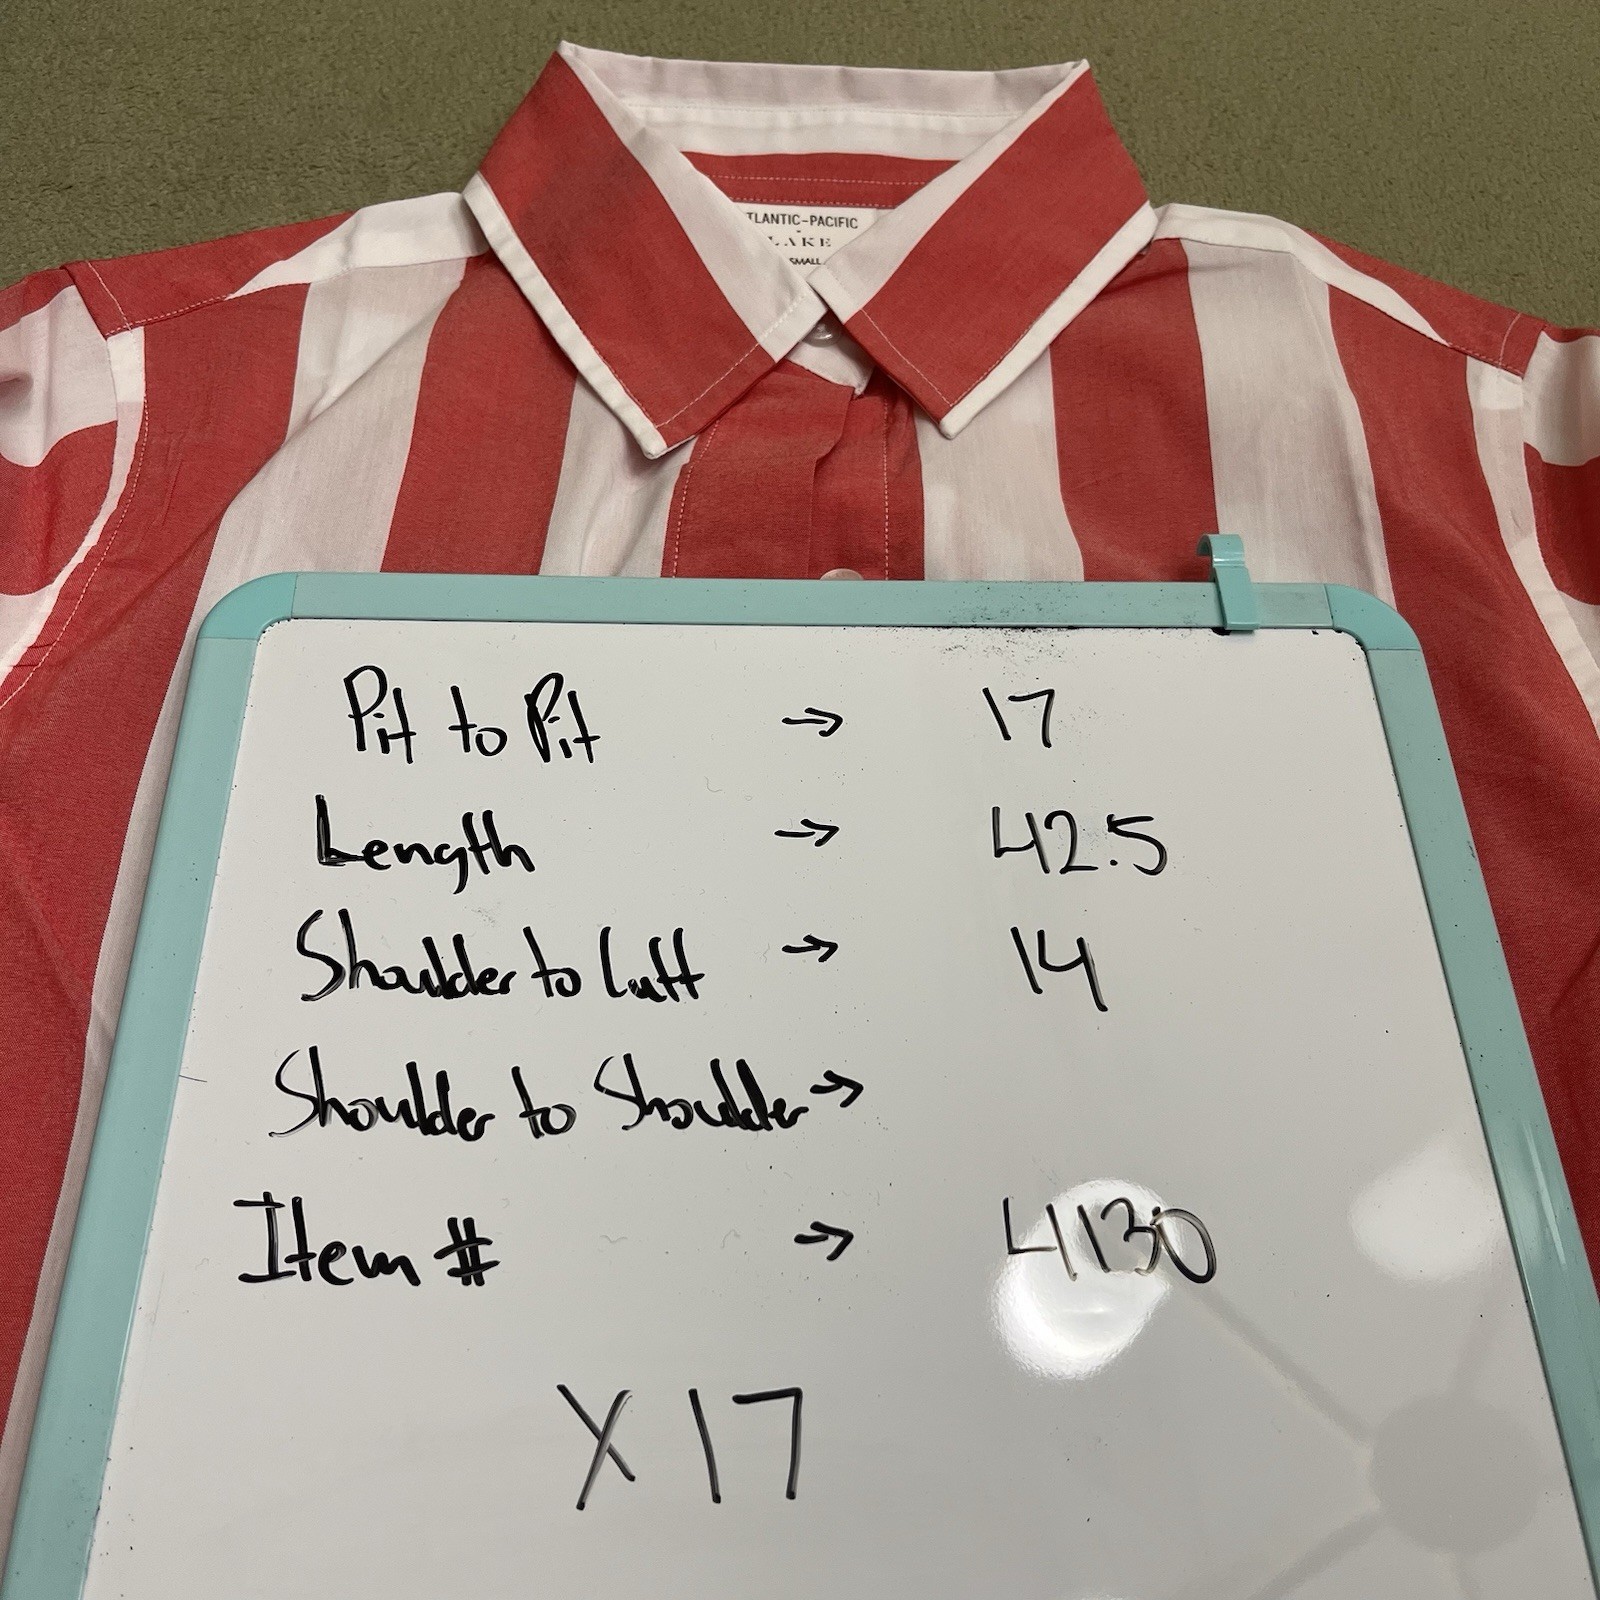 TLANTIC-PACIFIC
LAKE
SMALL
Pit to Pit → 17
Length → 42.5
Shoulder to Cuff → 14
Shoulder to Shoulder →
Item # → 4130
X17